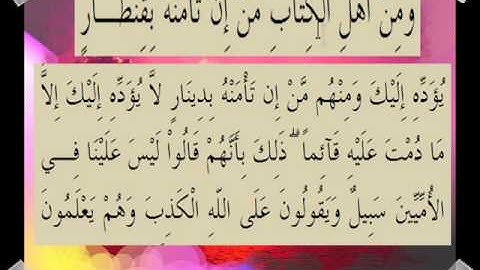 وَمِنْ أَهْلِ الْكِتَابِ مَنْ إِن تَأْمَنْهُ بِقِنطَارٍ
يُؤَدِّهِ إِلَيْكَ وَمِنْهُم مَّنْ إِن تَأْمَنْهُ بِدِينَارٍ لاَّ يُؤَدِّهِ إِلَيْكَ إِلاَّ
مَا دُمْتَ عَلَيْهِ قَآئِماً ۗ ذَلِكَ بِأَنَّهُمْ قَالُواْ لَيْسَ عَلَيْنَا فِي
الأُمِّيِّينَ سَبِيلٌ وَيَقُولُونَ عَلَى اللّهِ الْكَذِبَ وَهُمْ يَعْلَمُونَ